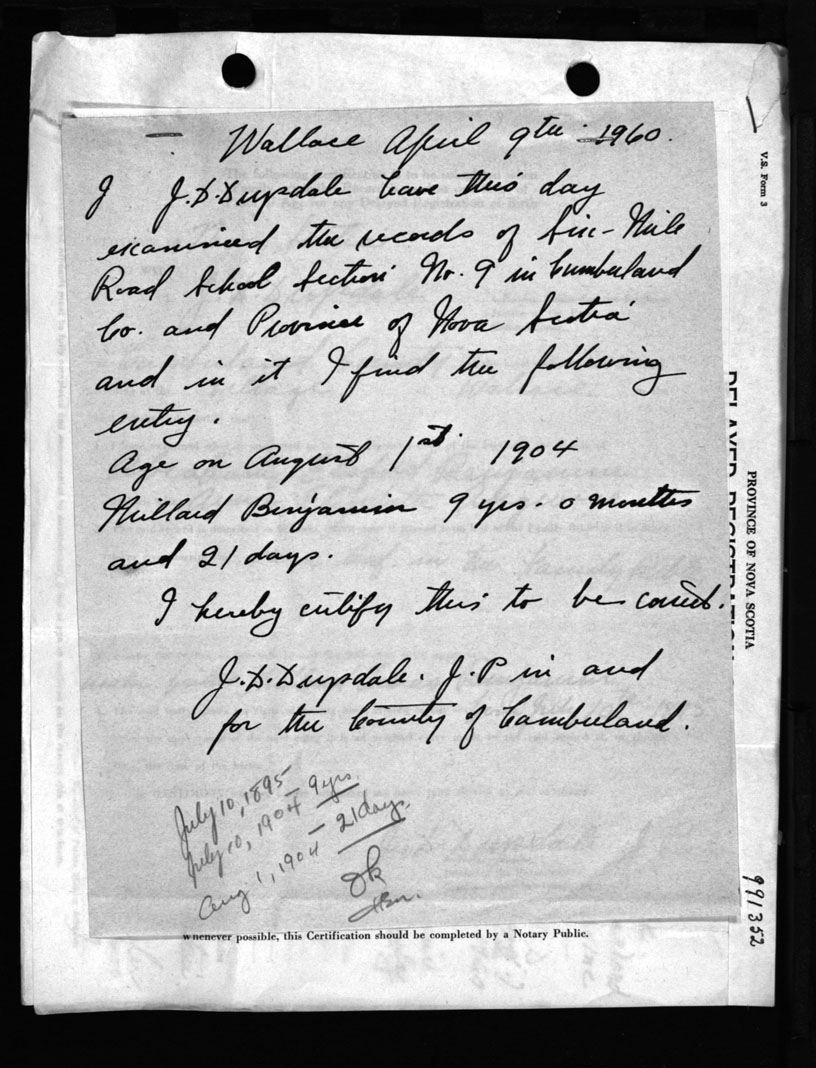 Wallace April 9th 1960.
I J.D. Drysdale have this day
examined the records of Six-Mile
Road School Section No. 9 in Cumberland
Co. and Province of Nova Scotia
and in it I find the following
entry.
Age on August 1st. 1904
Millard Benjamin 9 yrs. 0 months
and 21 days.
I hereby certify this to be correct.
J.D. Drysdale. J.P in and
for the County of Cumberland.
July 10, 1895
July 10, 1904 - 9 yrs.
Aug 1, 1904 - 21 days.
Ok
whenever possible, this Certification should be completed by a Notary Public.
V.S. Form 3
PROVINCE OF NOVA SCOTIA
DELAYED REGISTRATION
991352